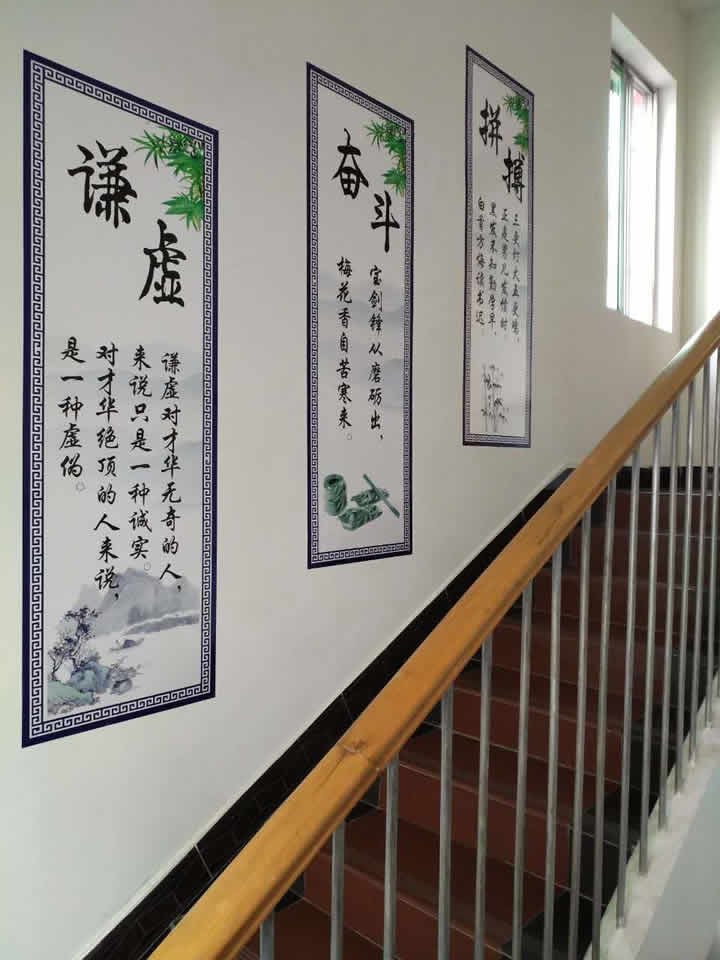 谦虚
谦虚对才华无奇的人，
来说只是一种诚实。
对才华绝顶的人来说，
是一种虚伪。
奋斗
宝剑锋从磨砺出，
梅花香自苦寒来。
拼搏
三更灯火五更鸡，
正是男儿发愤时，
黑发不知勤学早，
白首方悔读书迟。